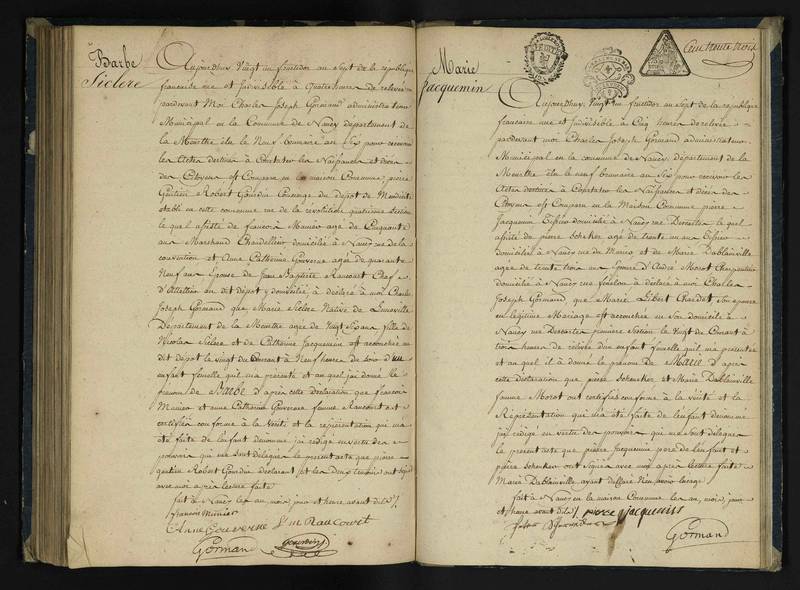 Barbe
Siclere
Aujourdhuy Vingt un fructidor an Sept de la republique
française une et Indivisible à quatre heures de relevée
pardevant Moi Charles Joseph Gormand administrateur
Municipal en la Commune de Nancy département de
la Meurthe élu le Neuf brumaire an Six pour recevoir
les Actes destinés à Constater les Naissances et décès
des Citoyens est Comparu en la maison Commune, pierre
Robert Gourdin Concierge du Depot de Mendicité
établi en cette commune rue de la révolution quatrieme Section
le quel assisté de françois Munier agé de Cinquante
ans Marchand Chandellier domicilié à Nancy rue de la
convention et Anne Catherine Gouverne agée de quarante
Neuf ans Epouse de Jean Baptiste Raucourt Chef
d'Attellier au dit dépot y domiciliée à déclaré à moi Charles
Joseph Gormand que Marie Siclere Native de Luneville
Département de la Meurthe agée de Vingt ans fille de
Nicolas Siclere et de Catherine Jacquemin est accouchée au
dit dépot le Vingt du Courant à Neuf heures du soir d'un
enfant femelle qu'il m'a présenté et au quel j'ai donné le
prenom de Barbe d'après cette déclaration que françois
Munier et anne Catherine Gouverne femme Raucourt ont
certifiés conforme à la Verité et la représentation qui m'a
été faite de l'enfant denommé, j'ai rédigé en vertu des
pouvoirs qui me sont délegués le présent acte que pierre
Robert Gourdin déclarant et les deux temoins ont signé
avec moi après lecture faite
fait à Nancy les an mois jour et heure avant dits
françois Munier
Anne Gouverne f me Raucourt
Gormand
gourdin
Marie
Jacquemin
Cent trente trois
Aujourdhuy Vingt un fructidor an Sept de la republique
française une et indivisible à Cinq heures de relevée
pardevant moi Charles Joseph Gormand administrateur
Municipal en la commune de Nancy, département de la
Meurthe élu le neuf brumaire an Six pour recevoir les
Actes destinés à Constater les Naissances et décès des
Citoyens est Comparu en la Maison Commune pierre
Jacquemin domicilié à Nancy rue Descartes le quel
assisté de pierre agé de trente un ans
domicilié à Nancy rue du Manege et de Marie Dablainville
agée de trente trois ans femme d'André Morot Charpentier
domiciliée à Nancy rue fenelon à déclaré à moi Charles
Joseph Gormand que Marie Libert Chardet Son épouse
en légitime Mariage est accouchée en Son domicile à
Nancy rue Descartes premiere Section le Vingt du Courant à
trois heures de relevée d'un enfant femelle qu'il m'a présenté
et au quel il à donné le prenom De Marie d'après
cette déclaration que pierre et Marie Dablainville
femme Morot ont certifiés conforme à la Verité et la
Réprésentation qui m'a été faite de l'enfant denommé
j'ai rédigé en vertu des pouvoirs qui me Sont délegués
le présent acte que pierre Jacquemin pere de l'enfant et
pierre ont Signés avec moi après lecture faite
Marie Dablainville ayant déclaré
fait à Nancy en la maison Commune les an, mois, jour
et heure avant dits
pierre jacquemin
Gormand